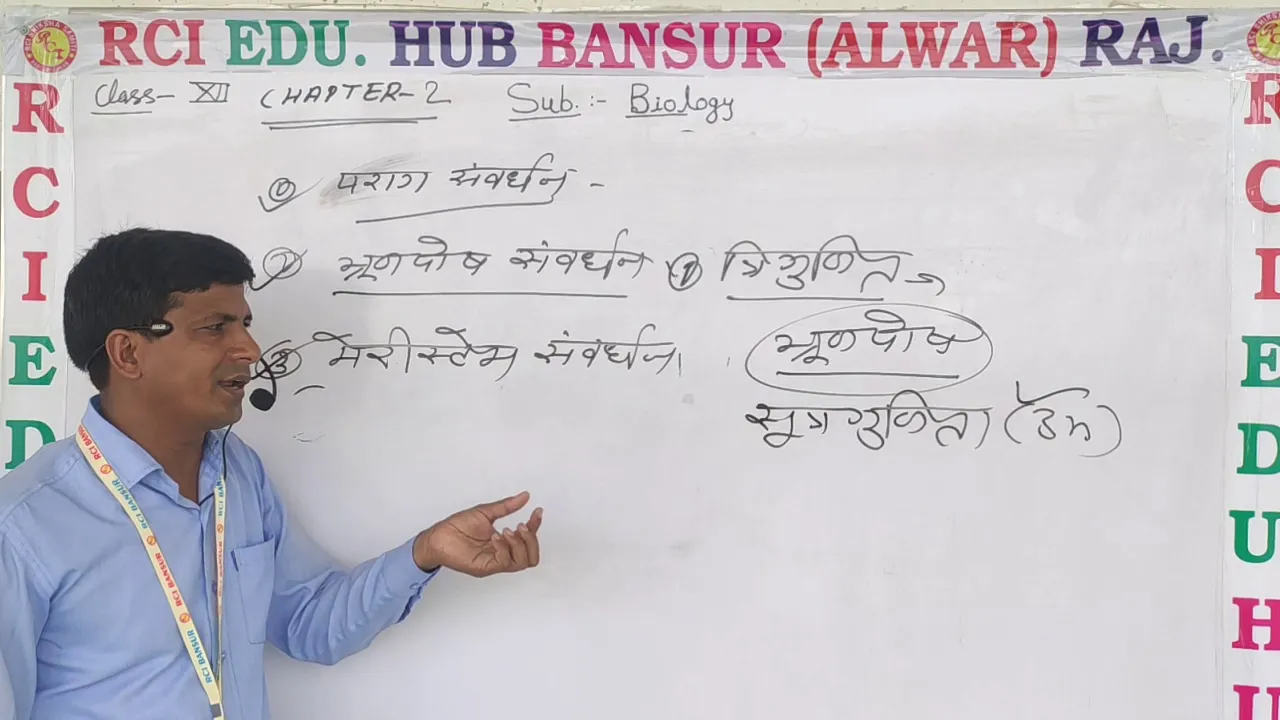 RCI EDU. HUB BANSUR (ALWAR) RAJ.
Class- XII CHAPTER-2 Sub.:- Biology
① पराग संवर्धन -
② भ्रूणपोष संवर्धन ① त्रिगुणित
③ मेरीस्टेम संवर्धन। भ्रूणपोष
सूत्रगुणिता (3n)
R
C
I
E
D
R
C
I
E
D
U
H
U
RCI BANSUR
RCI BANSUR
RCI BANSUR